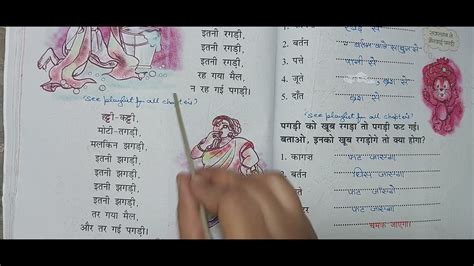 इतनी रगड़ी,
इतनी रगड़ी,
इतनी रगड़ी,
रह गया मैल,
न रह गई पगड़ी।
"see playlist for all chapters"
हट्टी-कट्टी,
मोटी-तगड़ी,
मलकिन झगड़ी,
इतनी झगड़ी,
इतनी झगड़ी,
इतनी झगड़ी,
तर गया मैल,
और तर गई पगड़ी।
2. बर्तन
3. पत्ते पानी से
4. जूते ब्रुश से
5. दाँत ब्रश से
"see playlist for all chapters"
पगड़ी को खूब रगड़ा तो पगड़ी फट गई।
बताओ, इनको खूब रगड़ोगे तो क्या होगा?
1. कागज़ फट जाएगा
2. बर्तन घिस जाएगा
3. पत्ते फट जाएँगे
4. जूते फट जाएगा
5. दाँत चमक जाएगा।